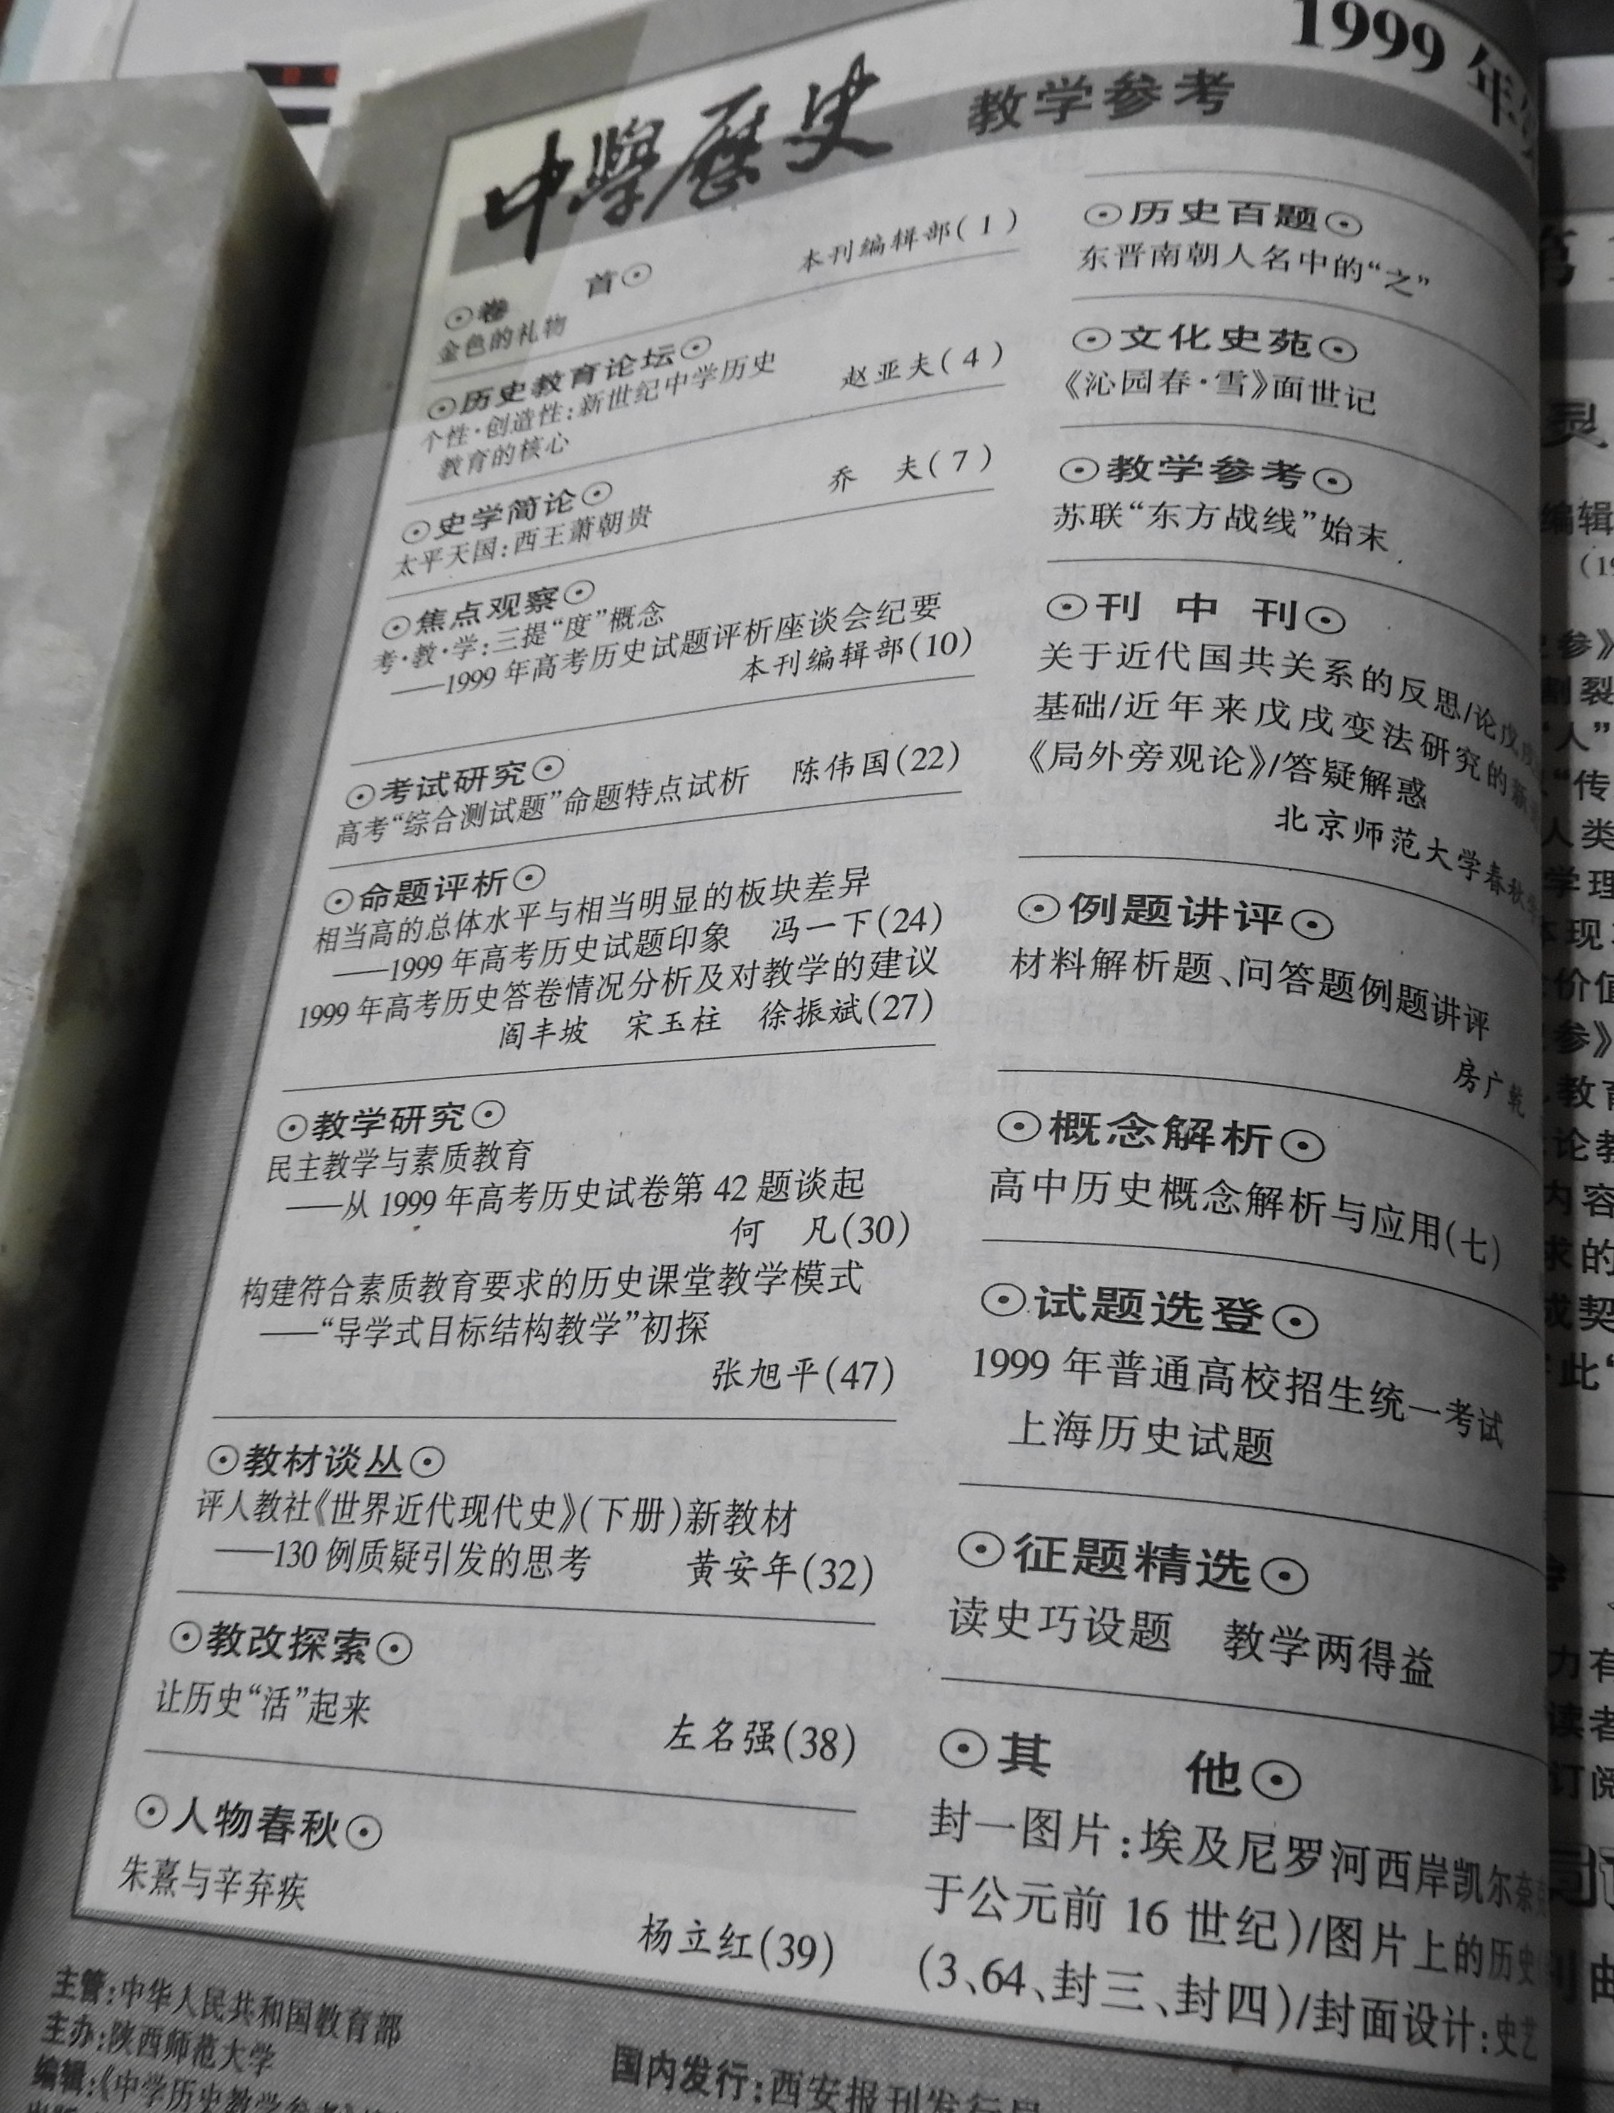 1999年
中學歷史 教学参考
⊙卷 首⊙
金色的礼物 本刊编辑部(1)
⊙历史教育论坛⊙
个性·创造性:新世纪中学历史
教育的核心 赵亚夫(4)
⊙史学简论⊙
太平天国:西王萧朝贵 乔 夫(7)
⊙焦点观察⊙
考·教·学:三提“度”概念
——1999年高考历史试题评析座谈会纪要
本刊编辑部(10)
⊙考试研究⊙
高考“综合测试题”命题特点试析 陈伟国(22)
⊙命题评析⊙
相当高的总体水平与相当明显的板块差异
——1999年高考历史试题印象 冯一下(24)
1999年高考历史答卷情况分析及对教学的建议
阎丰坡 宋玉柱 徐振斌(27)
⊙教学研究⊙
民主教学与素质教育
——从1999年高考历史试卷第42题谈起
何 凡(30)
构建符合素质教育要求的历史课堂教学模式
——“导学式目标结构教学”初探
张旭平(47)
⊙教材谈丛⊙
评人教社《世界近代现代史》(下册)新教材
——130例质疑引发的思考 黄安年(32)
⊙教改探索⊙
让历史“活”起来
左名强(38)
⊙人物春秋⊙
朱熹与辛弃疾
杨立红(39)
⊙历史百题⊙
东晋南朝人名中的“之”
⊙文化史苑⊙
《沁园春·雪》面世记
⊙教学参考⊙
苏联“东方战线”始末
⊙刊 中 刊⊙
关于近代国共关系的反思/论戊
基础/近年来戊戌变法研究的新
《局外旁观论》/答疑解惑
北京师范大学春秋学
⊙例题讲评⊙
材料解析题、问答题例题讲评
房广乾
⊙概念解析⊙
高中历史概念解析与应用(七)
⊙试题选登⊙
1999年普通高校招生统一考试
上海历史试题
⊙征题精选⊙
读史巧设题 教学两得益
⊙其 他⊙
封一图片:埃及尼罗河西岸凯尔奈
于公元前16世纪)/图片上的历史
(3、64、封三、封四)/封面设计:史艺
主管:中华人民共和国教育部
主办:陕西师范大学
编辑:《中学历史教学参考》
国内发行:西安报刊发行局
灵
编辑
参》
割裂
“人”
“传
人类
学理
本现
价值
参》
教育
论教
内容
求的
成契
此“
力有
读者
订阅